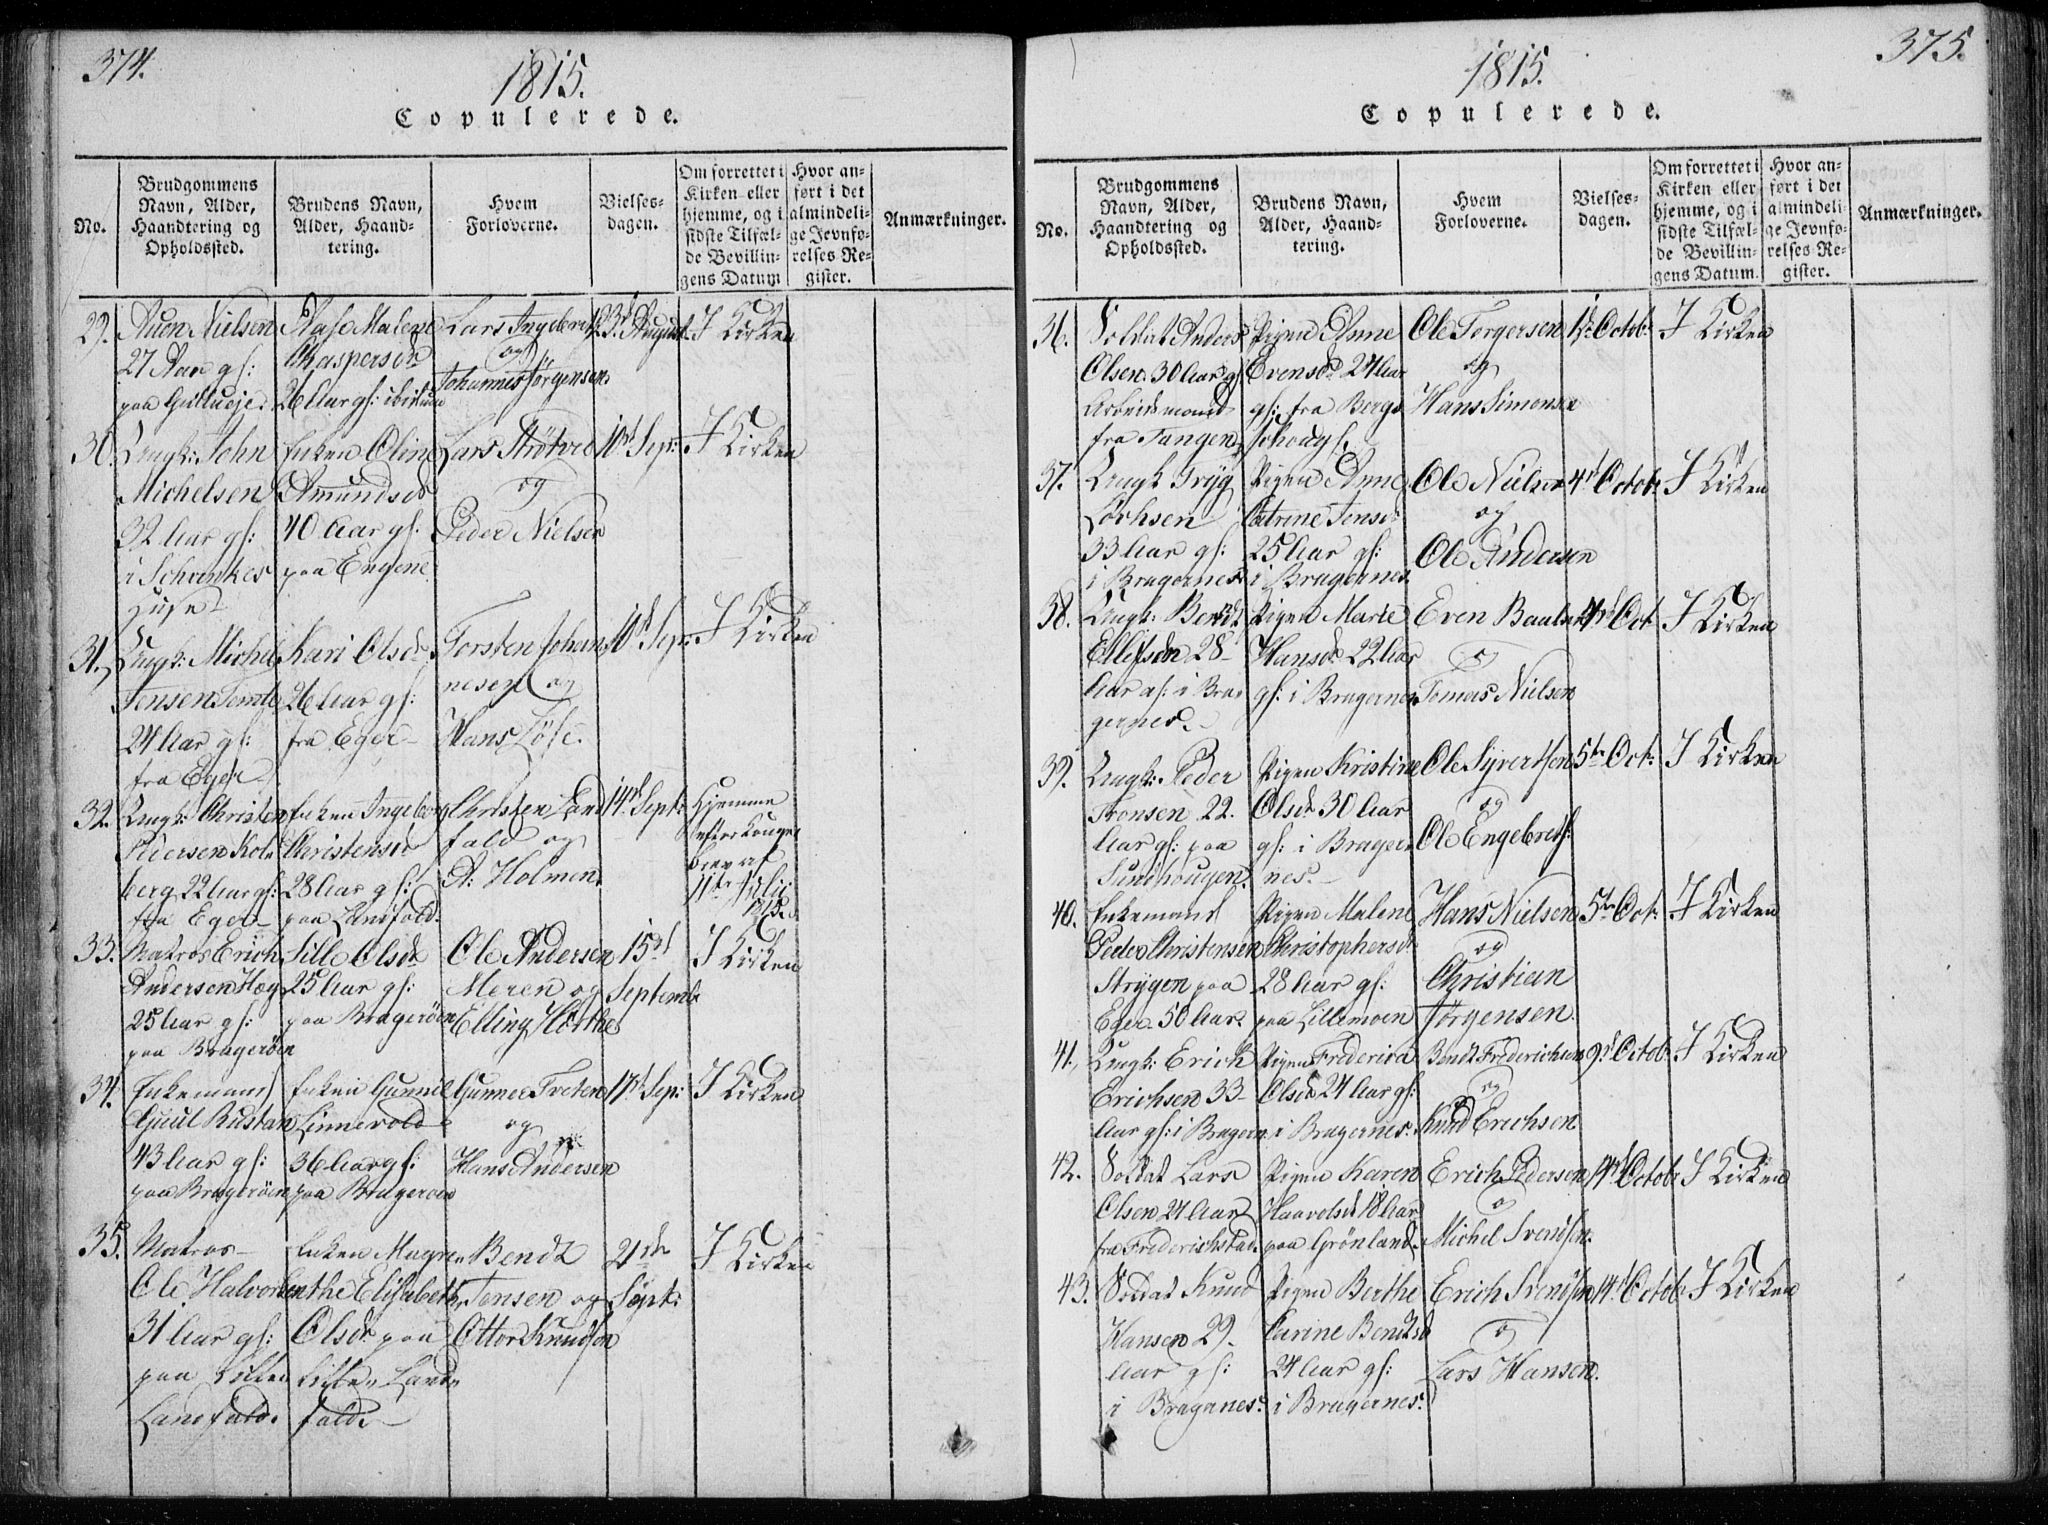 374.
1815.
Copulerede.
No.
Brudgommens Navn, Alder, Haandtering og Opholdssted.
Brudens Navn, Alder, Haandtering.
Hvem Forloverne.
Vielsesdagen.
Om forrettet i Kirken eller hjemme, og i sidste Tilfælde Bevillingens Datum
Hvor anført i det almindelige Jevnførelses Register.
Anmærkninger.
29. Auen Nielsen Aase Malene Lars Ingebrets. August I Kirken
27 Aar gl: Chaspersdr og
paa 26 Aar gl: Johannes Jørgensen
30. Ungk: John Enken Oline Lars Strøtved 10d Sep: I Kirken
Michelsen Amundsd og
32 Aar gl: 40 Aar gl: Peder Nielsen
i Schrenkes paa Engene
Huse
31. Ungk: Michel Kari Olsdr Torsten Johan 10d Sep: I Kirken
Jensen 26 Aar gl: nesen og
24 Aar gl: fra Eger Hans
fra Eger
32. Ungk: Christen Enken Ingeborg Christen Land 14d Sept: Hjemme
Pedersen Kol Christensdr fald og efter Konge
berg 22 Aar gl: 28 Aar gl: A: Holmen brev af
fra Eger paa Landfald. 11te
33. Matros Erich Sille Olsdr Ole Andersen 15d I Kirken
Andersen Hæg 25 Aar gl: Meren og Septemb
25 Aar gl: paa Bragerøen Elling
paa Bragerøen
34. Enkemand Enken Gunnil Gunner Treten 17d Sep: I Kirken
Gjuul Rustan Linnevold og
43 Aar gl: 36 Aar gl: Hans Andersen
paa Bragerøen paa Bragerøen
35. Matros Enken Magre Bendt 21de I Kirken
Ole Halvorsen nthe Elisabeth Jensen og Sept:
31 Aar gl: Olsdr paa Ottor Knudsen
paa Lille Lille Land
Landfald. fald.
375.
1815.
Copulerede.
No.
Brudgommens Navn, Alder, Haandtering og Opholdssted.
Brudens Navn, Alder, Haandtering.
Hvem Forloverne.
Vielsesdagen.
Om forrettet i Kirken eller hjemme, og i sidste Tilfælde Bevillingens Datum.
Hvor anført i det almindelige Jevnførelses Register.
Anmærkninger.
36. Soldat Anders Pigen Anne Ole Torgersen 1d: Octob: I Kirken
Olsen 30 Aar gl Evensdr 24 Aar og
Arbeidsmand gl: fra Bergs Hans Simonsen
fra Tangen
37. Ungk: Tryg Pigen Anne Ole Nielsen 4d Octob: I Kirken
Catrine Jensd: og
33 Aar gl: 25 Aar gl: Ole Andersen
i Bragernes i Bragernes.
38. Ungk: Berndt Pigen Marte Even 4d Oct I Kirken
Ellefsen 28 Hansdr 22 Aar og
Aar gl: i Bra gl: i Bragernes Tomas Nielsen
gernes.
39. Ungk: Peder Pigen Kristine Ole Syvertsen 5te Oct: I Kirken
Tronsen 22. Olsdr 30 Aar og
Aar gl: paa gl: i Brager Ole Engebrets:
Sundhougen. nes.
40. Enkemand Pigen Malene Hans Nielsen 5te Oct: I Kirken
Peder Christensen Christophersdr og
Strygen paa 28 Aar gl: Christian
Eger 50 Aar. paa Lillemoen Jørgensen.
41. Ungk: Erich Pigen Frederica Bendt Frederichsen 9d Octob: I Kirken
Erichsen 33 Olsdr 24 Aar gl: og
Aar gl: i Bragern i Bragernes. Knud Erichsen
42. Soldat Lars Pigen Karen Erich Pedersen 14d Octob: I Kirken
Olsen 24 Aar Haavelsd 18 Aar og
fra Frederichstad. paa Grönland. Michel Svendsen.
43. Soldat Knud Pigen Berthe Erich Svendsen 14d Octob I Kirken
Hansen 29 Carine Bendtsd og
Aar gl: 24 Aar gl: Lars Hansen.
i Bragernes. i Bragernes.